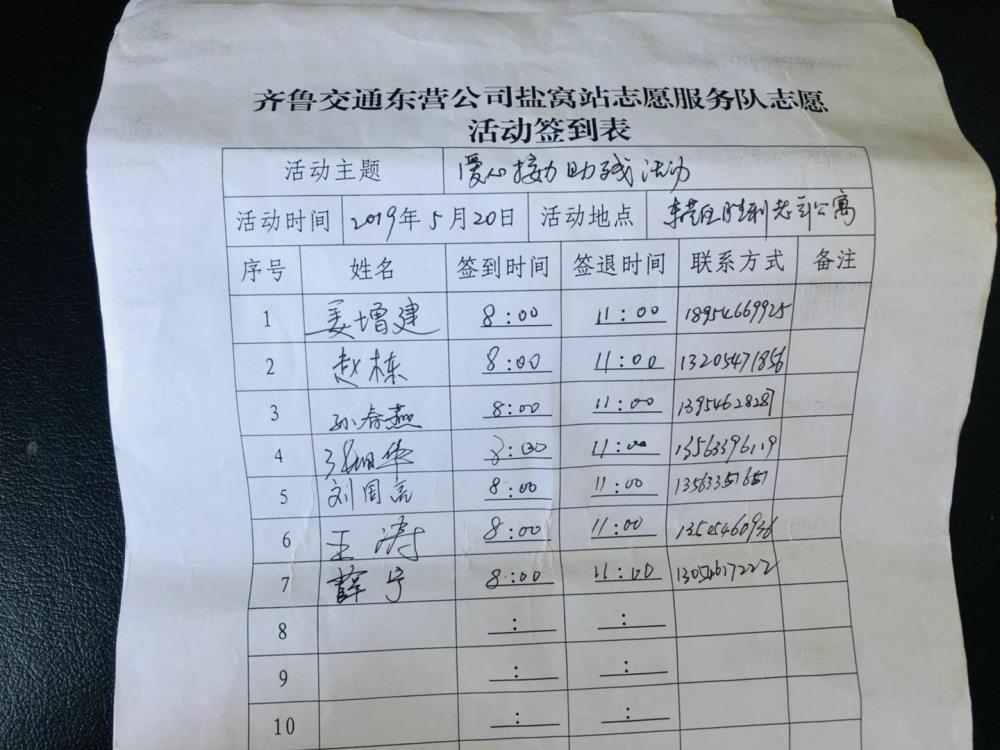 齐鲁交通东营公司盐窝站志愿服务队志愿
活动签到表
活动主题 爱心接力助残活动
活动时间 2019年5月20日 活动地点 胜利 公寓
序号 姓名 签到时间 签退时间 联系方式 备注
1 姜增建 8:00 11:00 18954669925
2 赵栋 8:00 11:00 13205471856
3 孙春燕 8:00 11:00 13954628287
4 8:00 11:00 13563396119
5 刘国亮 8:00 11:00
6 王涛 8:00 11:00 13505460936
7 薛宁 8:00 11:00 13054617222
8 : :
9 : :
10 : :